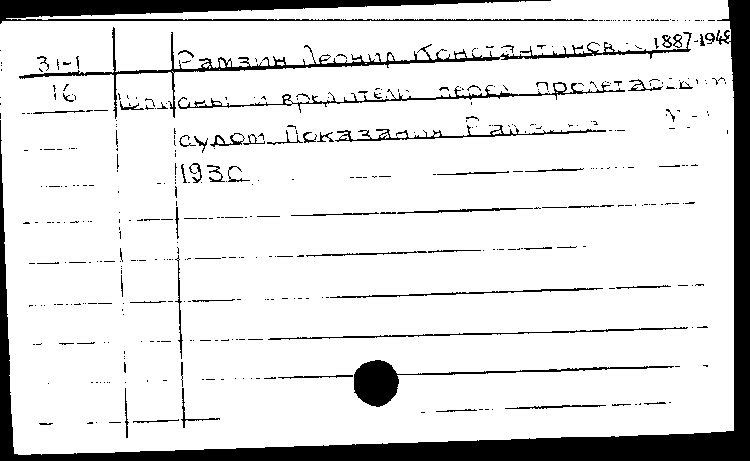 31-1 Рамзин Леонид Константинович 1887-1948
16 Шпионы и вредители перед пролетарским
судом. Показания Рамзина
1930